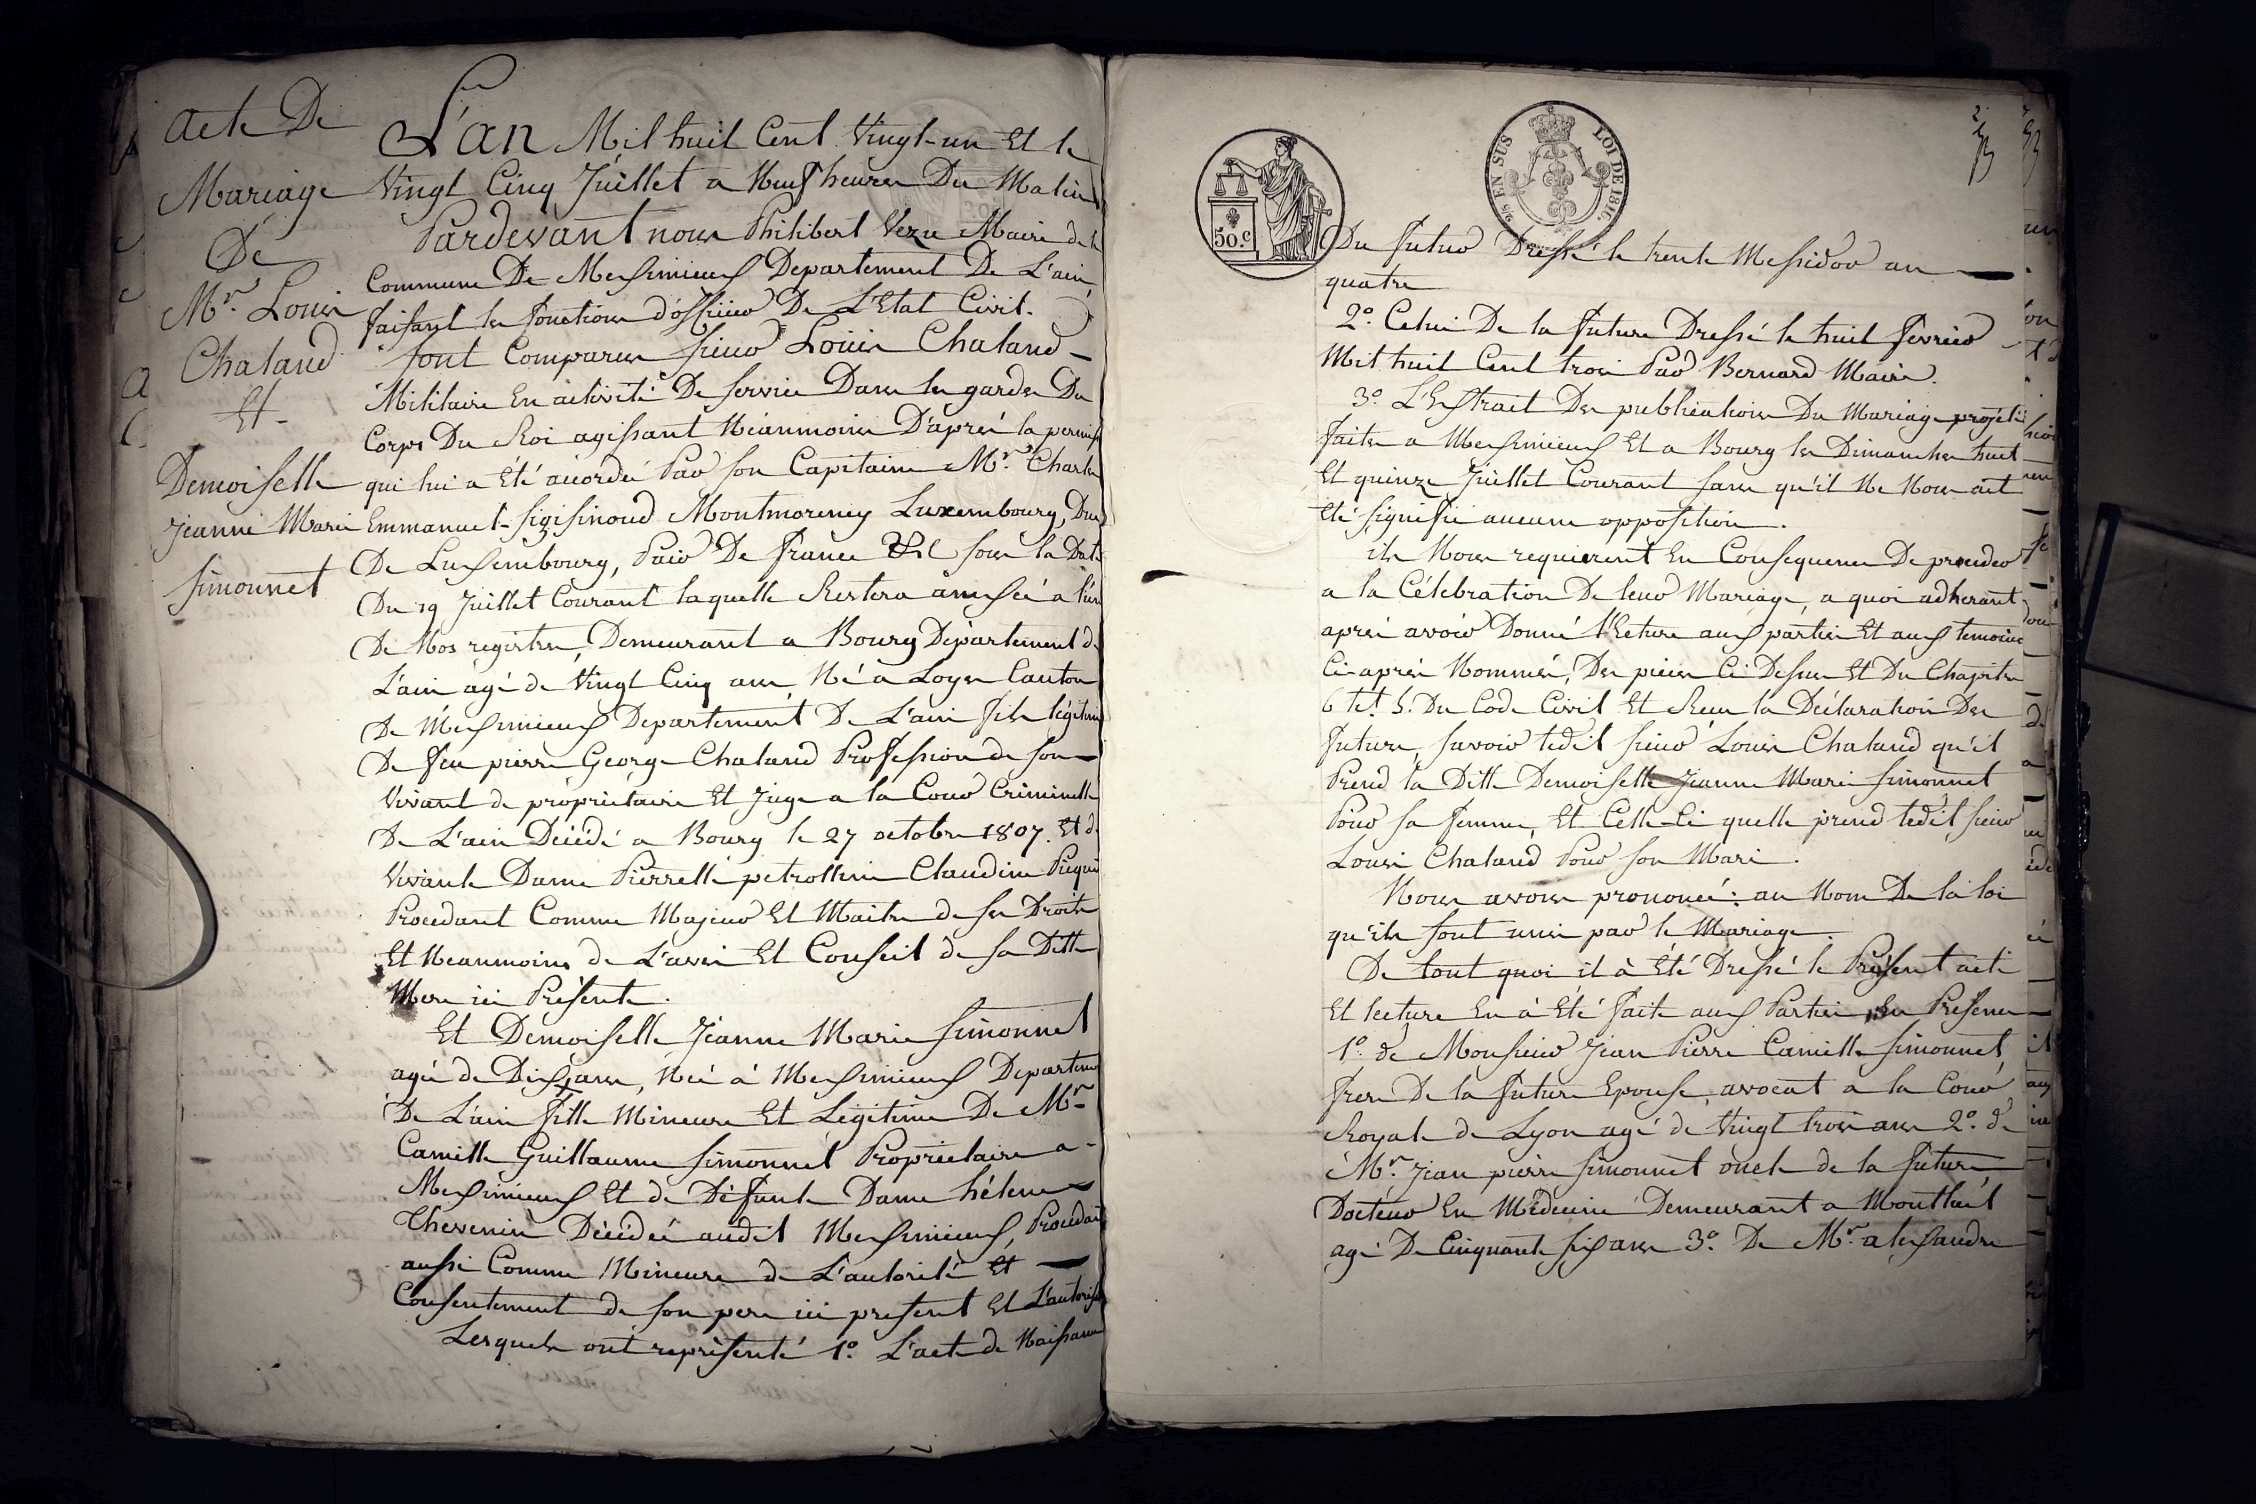 acte De
Mariage
De
Mr. Louis
Chaland
Et
Demoiselle
Jeanne Marie
Simonnet
L'an Mil huit Cent Vingt-un Et le
Vingt Cinq Juillet a Neuf heures Du Matin
Pardevant nous Philibert Vezu Maire de la
Commune De Meximieux Departement De L'ain,
faisant les fonctions d'officier De L'Etat Civil.
sont Comparus sieur Louis Chaland
Militaire En activité De service Dans les gardes Du
Corps Du Roi agissant Néanmoins D'après la permis
qui lui a Eté accordée Par son Capitaine Mr. Charles
Emmanuel-Sigismond Montmorency Luxembourg, Duc
De Luxembourg, Pair De france &c sous la Date
Du 19 Juillet Courant laquelle Restera annexée a l'un
De Nos registres, Demeurant a Bourg Département de
L'ain agé de Vingt Cinq ans, Né à Loyes Canton
De Meximieux Departement De L'ain fils légitime
De feu pierre George Chaland Profession de son
Vivant de propriétaire Et Juge a la Cour Criminelle
De L'ain Décédé a Bourg le 27 octobre 1807. Et de
Vivante Dame Pierrette petrolline Claudine
Procedant Comme Majeur Et Maitre de ses Droits
Et Neanmoins de L'avis Et Conseil de sa Ditte
Mere ici Présente.
Et Demoiselle Jeanne Marie Simonnet
agée de Dix ans, Née à Meximieux Departeme
De L'ain fille Mineure Et Légitime De Mr.
Camille Guillaume Simonnet Propriétaire a
Meximieux Et de Défunte Dame hélene
Thevenin Décédée audit Meximieux, Procedant
aussi Comme Mineure de L'autorité Et
Consentement de son pere ici present Et L'autorise
Lesquels ont représenté 1º. L'acte de Naissance
50.c
25 EN SUS
LOI DE 1816.
Du futur Dressé le trente Messidor an
quatre
2º. Celui De la future Dressé le huit fevrier
Mil huit Cent trois Par Bernard Maire.
3º. L'Extrait Des publications Du Mariage projeté
faites a Meximieux Et a Bourg les Dimanches huit
Et quinze Juillet Courant sans qu'il Ne Nous ait
Eté signifié aucune opposition.
ils Nous requierent En Consequence De proceder
a la Célebration De leur Mariage, a quoi adherant
après avoir Donné l'Ecture aux parties Et aux temoins
Ci après Nommés, Des pièces Ci Dessus Et Du Chapitre
6 tet. 5. Du Code Civil Et Reçu la Déclaration Des
futurs, savoir ledit sieur Louis Chaland qu'il
Prend la Ditte Demoiselle Jeanne Marie Simonnet
Pour sa femme, Et Celle-Ci quelle prend ledit sieur
Louis Chaland Pour son Mari.
Nous avons prononcé: au Nom De la loi
qu'ils sont unis par le Mariage.
De tout quoi il à Eté Dressé le Présent acte
Et lecture En à Eté faite aux Parties, En Présence
1º. de Monsieur Jean Pierre Camille Simonnet
frere De la future Epouse, avocat a la Cour
Royale de Lyon agé de Vingt trois ans 2º. de
Mr. Jean pierre Simonnet oncle de la future
Docteur En Médecine Demeurant a Montluel
agé De Cinquante six ans 3º. De Mr. alexandre